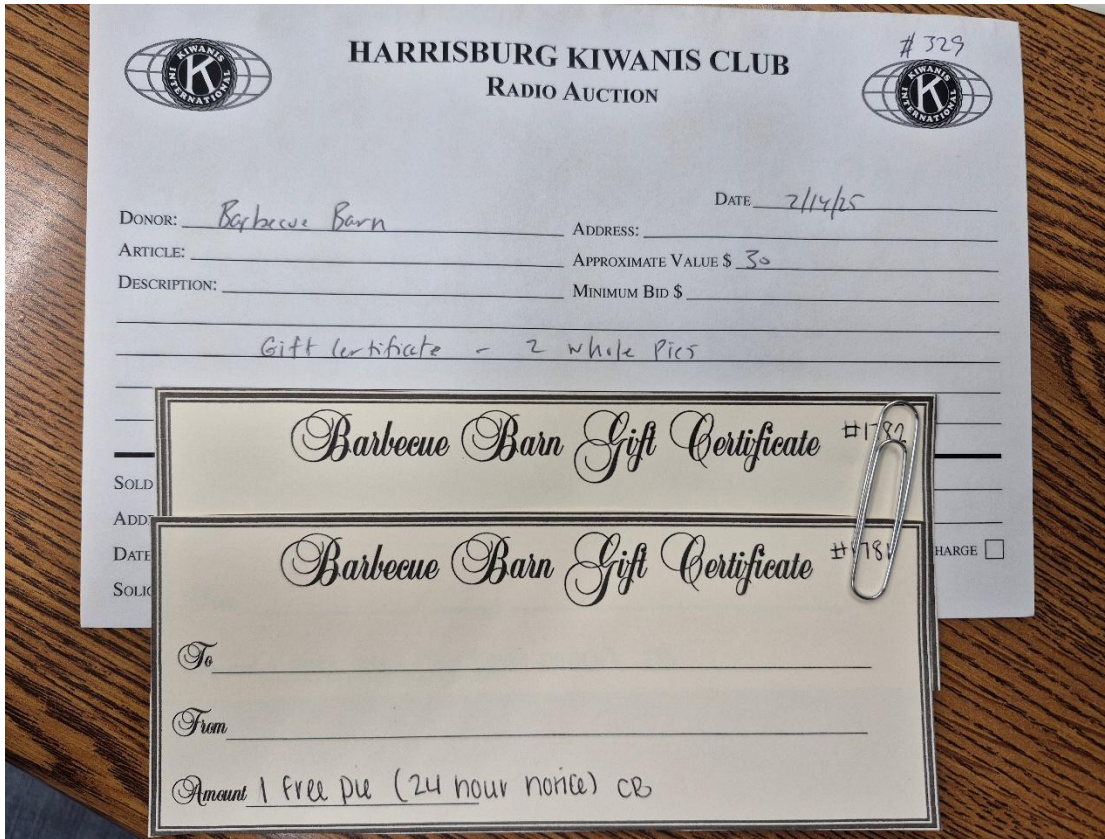 # 329
HARRISBURG KIWANIS CLUB
RADIO AUCTION
KIWANIS K INTERNATIONAL
KIWANIS K INTERNATIONAL
DATE 2/14/25
DONOR: Barbecue Barn
ADDRESS:
ARTICLE:
APPROXIMATE VALUE $ 30
DESCRIPTION:
MINIMUM BID $
Gift Certificate - 2 whole Pies
Barbecue Barn Gift Certificate #1782
SOLD
ADD
DATE
HARGE
SOLIC
Barbecue Barn Gift Certificate #1781
To
From
Amount 1 free pie (24 hour notice) CB